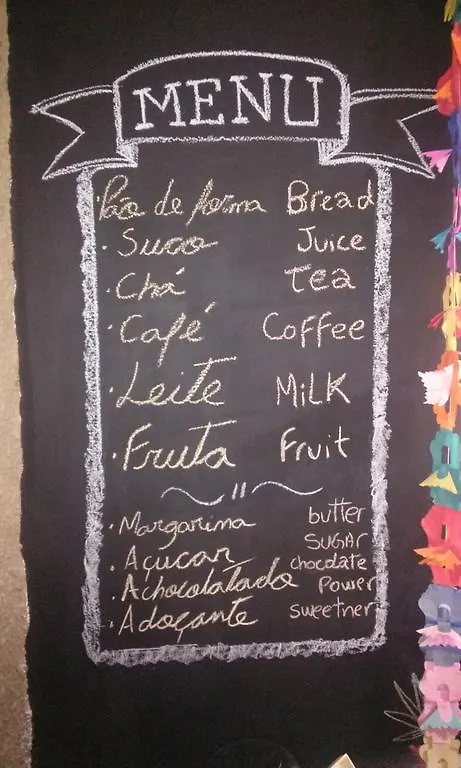 MENU
· Pão de forma Bread
· Suco Juice
· Chá Tea
· Café Coffee
· Leite Milk
· Fruta Fruit
· Margarina butter
· Açucar SUGAR
· Achocolatado chocolate power
· Adoçante sweetner